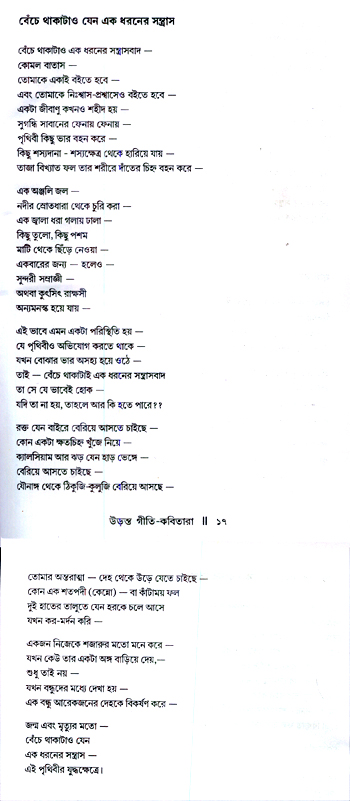 বেঁচে থাকাটাও যেন এক ধরনের সন্ত্রাস
বেঁচে থাকাটাও এক ধরনের সন্ত্রাসবাদ —
কোমল বাতাস —
তোমাকে একাই বইতে হবে —
এবং তোমাকে নিঃশ্বাস-প্রশ্বাসেও বইতে হবে —
একটা জীবাণু কখনও শহীদ হয় —
সুগন্ধি সাবানের ফেনায় ফেনায় —
পৃথিবী কিছু ভার বহন করে —
কিছু শস্যদানা - শস্যক্ষেত্র থেকে হারিয়ে যায় —
তাজা বিখ্যাত ফল তার শরীরে দাঁতের চিহ্ন বহন করে —
এক অঞ্জলি জল —
নদীর স্রোতধারা থেকে চুরি করা —
এক জ্বালা ধরা গলায় ঢালা —
কিছু তুলো, কিছু পশম
মাটি থেকে ছিঁড়ে নেওয়া —
একবারের জন্য — হলেও —
সুন্দরী সম্রাজ্ঞী —
অথবা কুৎসিৎ রাক্ষসী
অন্যমনস্ক হয়ে যায় —
এই ভাবে এমন একটা পরিস্থিতি হয় —
যে পৃথিবীও অভিযোগ করতে থাকে —
যখন বোঝার ভার অসহ্য হয়ে ওঠে —
তাই — বেঁচে থাকাটাই এক ধরনের সন্ত্রাসবাদ
তা সে যে ভাবেই হোক —
যদি তা না হয়, তাহলে আর কি হতে পারে??
রক্ত যেন বাইরে বেরিয়ে আসতে চাইছে —
কোন একটা ক্ষতচিহ্ন খুঁজে নিয়ে —
ক্যালসিয়াম আর ঝড় যেন হাড় ভেঙ্গে —
বেরিয়ে আসতে চাইছে —
যৌনাঙ্গ থেকে ঠিকুজি-কুলুজি বেরিয়ে আসছে —
উড়ন্ত গীতি-কবিতারা ॥ ১৭
তোমার অন্তরাত্মা — দেহ থেকে উড়ে যেতে চাইছে —
কোন এক শতপদী (কেন্নো) — বা কাঁটাময় ফল
দুই হাতের তালুতে যেন হরকে চলে আসে
যখন কর-মর্দন করি —
একজন নিজেকে শজারুর মতো মনে করে —
যখন কেউ তার একটা অঙ্গ বাড়িয়ে দেয়,—
শুধু তাই নয় —
যখন বন্ধুদের মধ্যে দেখা হয় —
এক বন্ধু আরেকজনের দেহকে বিকর্ষণ করে —
জন্ম এবং মৃত্যুর মতো —
বেঁচে থাকাটাও যেন
এক ধরনের সন্ত্রাস —
এই পৃথিবীর যুদ্ধক্ষেত্রে।